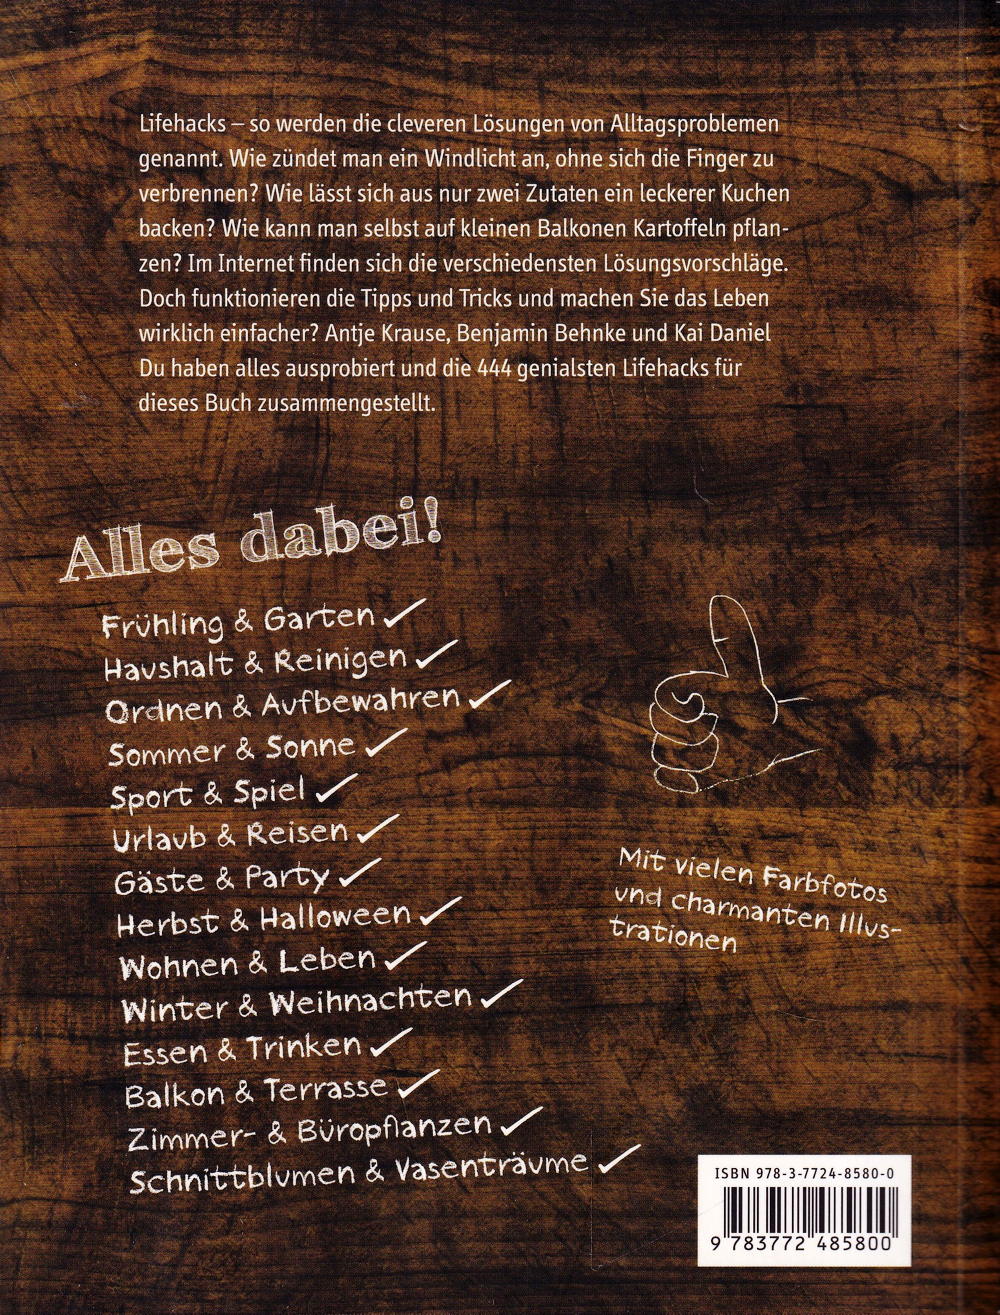 Lifehacks – so werden die cleveren Lösungen von Alltagsproblemen
genannt. Wie zündet man ein Windlicht an, ohne sich die Finger zu
verbrennen? Wie lässt sich aus nur zwei Zutaten ein leckerer Kuchen
backen? Wie kann man selbst auf kleinen Balkonen Kartoffeln pflan-
zen? Im Internet finden sich die verschiedensten Lösungsvorschläge.
Doch funktionieren die Tipps und Tricks und machen Sie das Leben
wirklich einfacher? Antje Krause, Benjamin Behnke und Kai Daniel
Du haben alles ausprobiert und die 444 genialsten Lifehacks für
dieses Buch zusammengestellt.
Alles dabei!
Frühling & Garten ✓
Haushalt & Reinigen ✓
Ordnen & Aufbewahren ✓
Sommer & Sonne ✓
Sport & Spiel ✓
Urlaub & Reisen ✓
Gäste & Party ✓
Herbst & Halloween ✓
Wohnen & Leben ✓
Winter & Weihnachten ✓
Essen & Trinken ✓
Balkon & Terrasse ✓
Zimmer- & Büropflanzen ✓
Schnittblumen & Vasenträume ✓
Mit vielen Farbfotos
und charmanten Illus-
trationen
ISBN 978-3-7724-8580-0
9 783772 485800